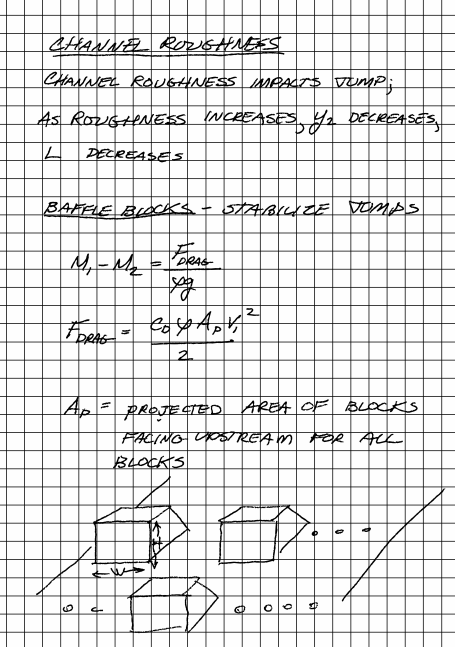 CHANNEL ROUGHNESS
CHANNEL ROUGHNESS IMPACTS JUMP;
AS ROUGHNESS INCREASES, y2 DECREASES,
L DECREASES
BAFFLE BLOCKS - STABILIZE JUMPS
M1 - M2 = FDRAG / φg
FDRAG = CD φ AP V1^2 / 2
AP = PROJECTED AREA OF BLOCKS
FACING UPSTREAM FOR ALL
BLOCKS
H
W